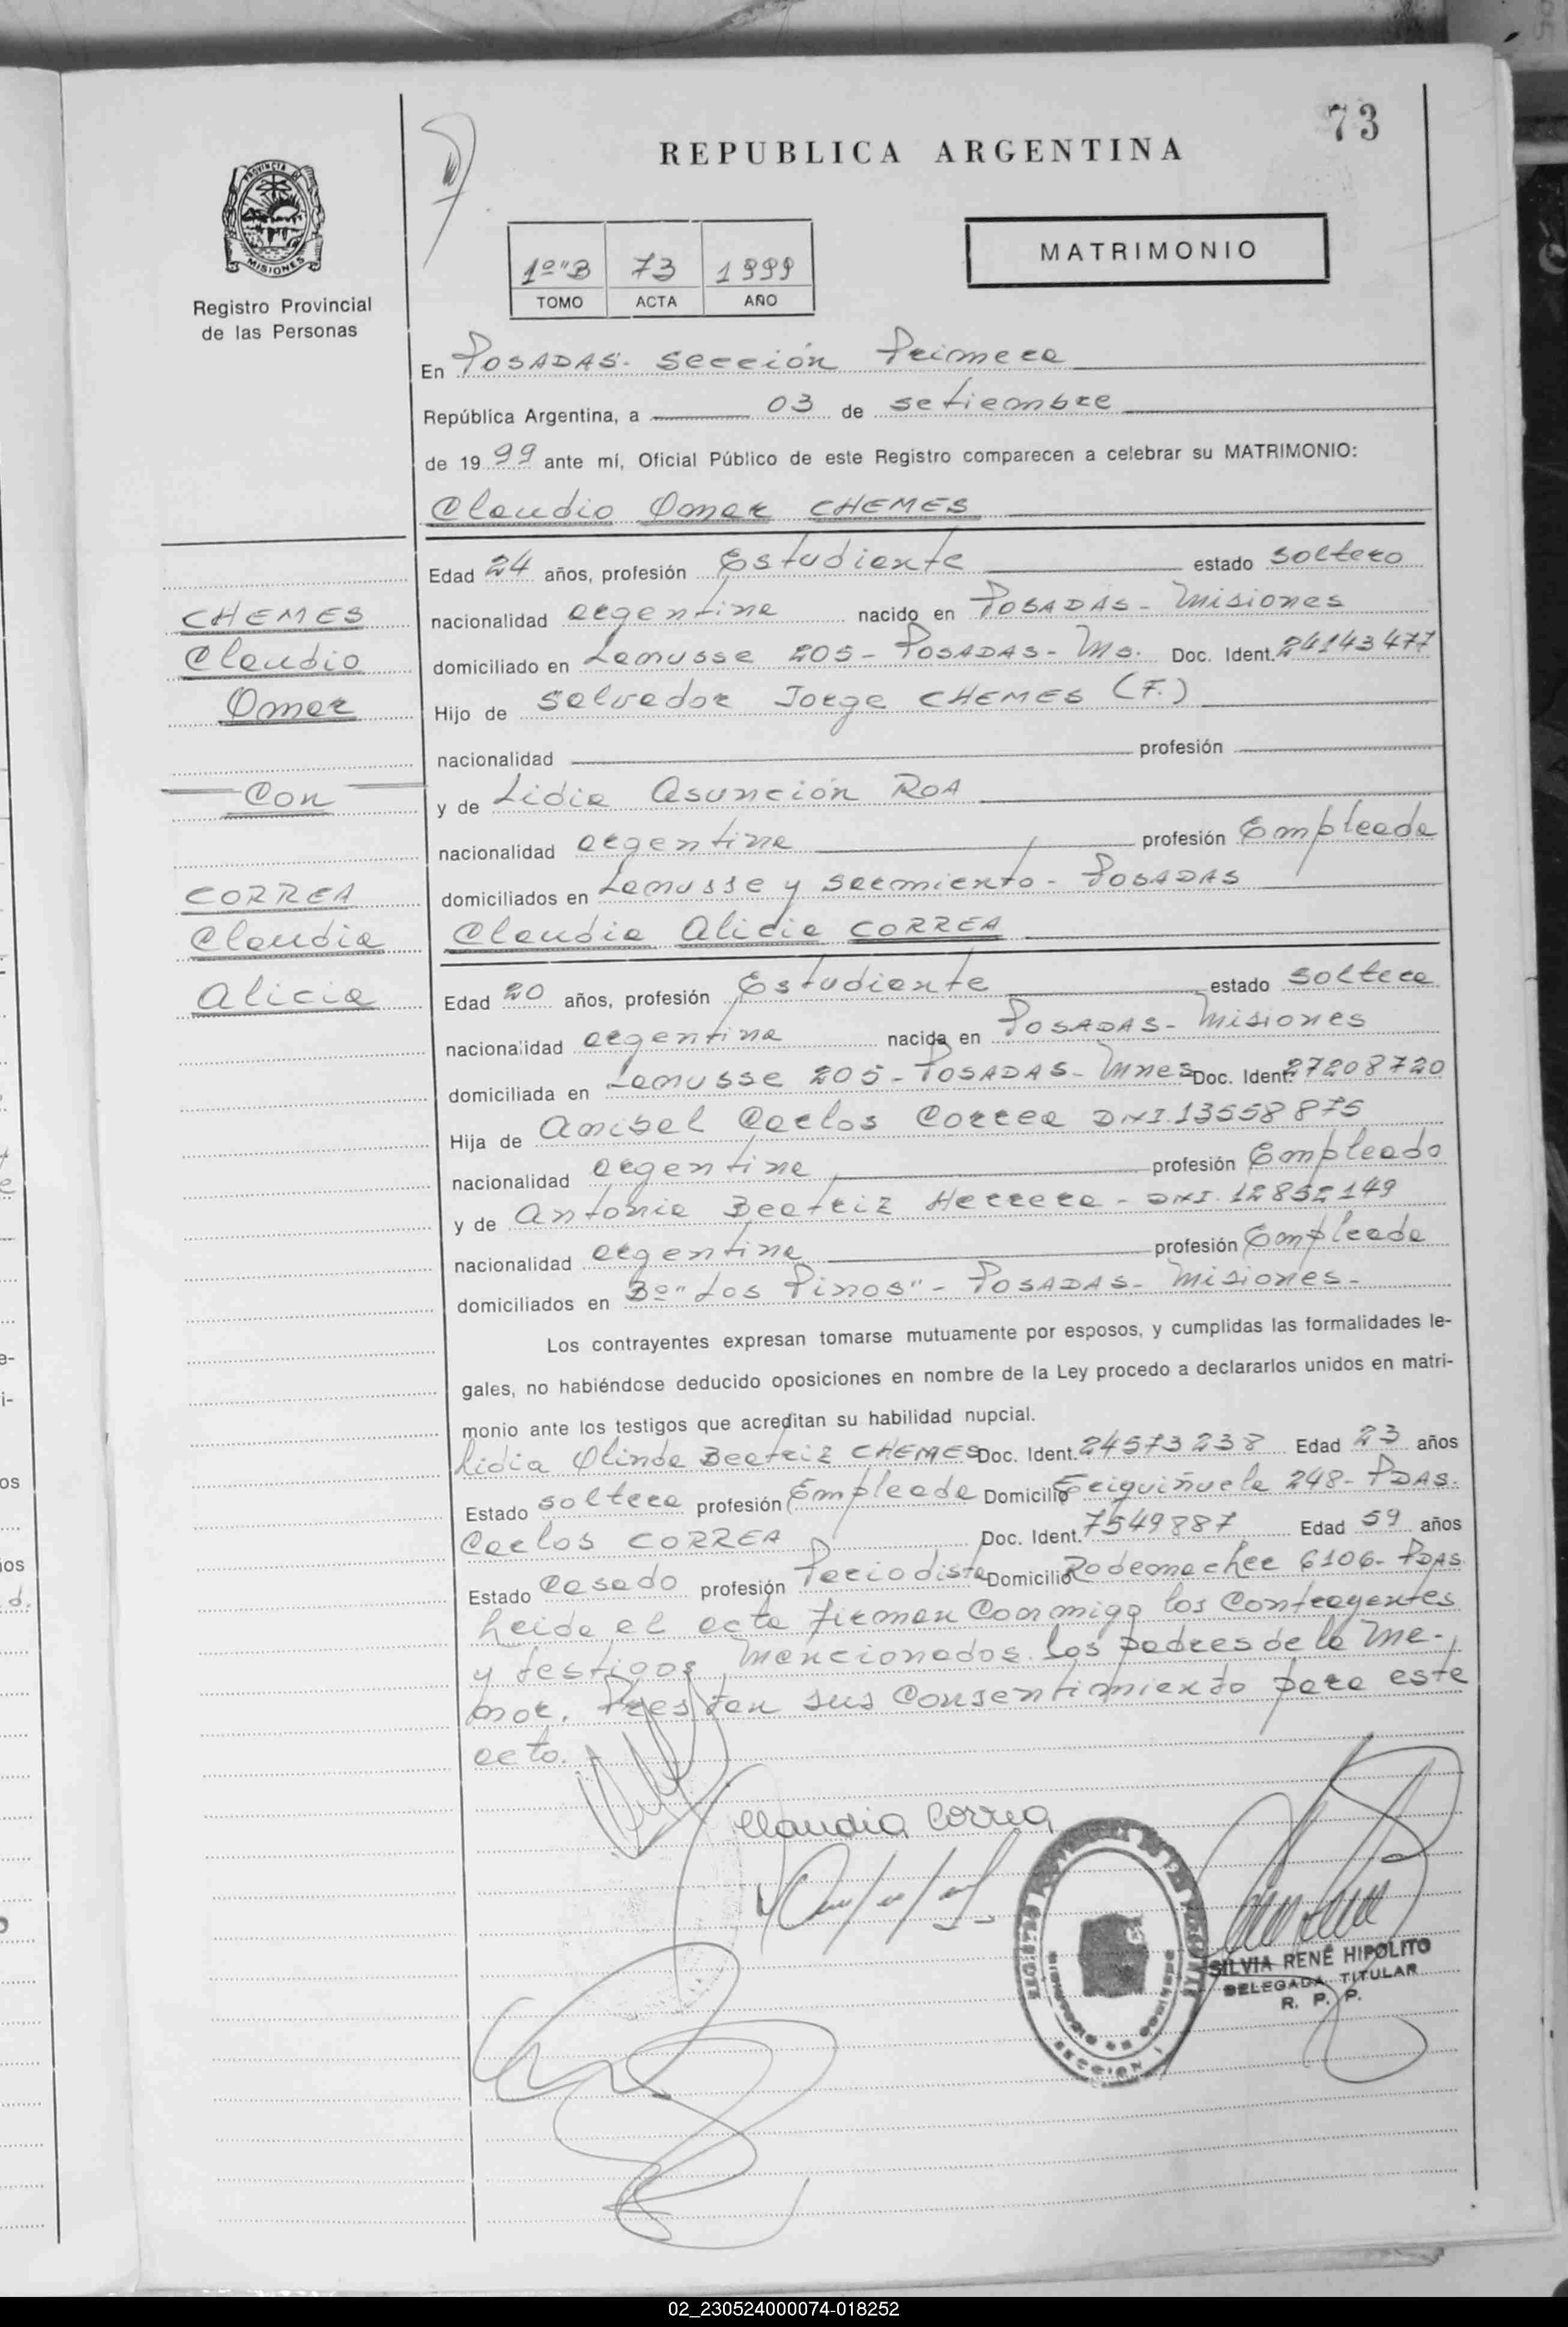 73
REPUBLICA ARGENTINA
PROVINCIA DE
MISIONES
Registro Provincial
de las Personas
1º"B 73 1999
TOMO ACTA AÑO
MATRIMONIO
En POSADAS- Sección Primera
República Argentina, a 03 de setiembre
de 19 99 ante mí, Oficial Público de este Registro comparecen a celebrar su MATRIMONIO:
Claudio Omar CHEMES
Edad 24 años, profesión Estudiante estado soltero
nacionalidad argentina nacido en POSADAS- Misiones
domiciliado en Lanusse 205- POSADAS- Ms. Doc. Ident. 24143477
Hijo de Salvador Jorge CHEMES (F.)
nacionalidad profesión
y de Lidia Asunción ROA
nacionalidad argentina profesión Empleada
domiciliados en Lanusse y Sarmiento- POSADAS
Claudia Alicia CORREA
CHEMES
Claudio
Omar
Con
CORREA
Claudia
Alicia
Edad 20 años, profesión Estudiante estado soltera
nacionalidad argentina nacida en POSADAS- Misiones
domiciliada en Lanusse 205- POSADAS- Mnes Doc. Ident. 27208720
Hija de Anibal Carlos Correa DNI. 13558875
nacionalidad argentina profesión Empleado
y de Antonia Beatriz Herrera - DNI. 12852149
nacionalidad argentina profesión Empleada
domiciliados en Bº"Los Pinos"- POSADAS- Misiones-
Los contrayentes expresan tomarse mutuamente por esposos, y cumplidas las formalidades le-
gales, no habiéndose deducido oposiciones en nombre de la Ley procedo a declararlos unidos en matri-
monio ante los testigos que acreditan su habilidad nupcial.
Lidia Olinda Beatriz CHEMES Doc. Ident. 24573238 Edad 23 años
Estado soltera profesión Empleada Domicilio 248- PDAS.
Carlos CORREA Doc. Ident. 7549887 Edad 59 años
Estado Casado profesión Periodista Domicilio Rademacher 6106- PDAS.
Leida el acta firman Conmigo los Contrayentes
y testigos mencionados. los padres de la me-
nor. Prestan sus Consentimiento para este
acto.
Claudia Correa
SECCION 1
SILVIA RENÉ HIPOLITO
DELEGADA TITULAR
R. P. P.
02_230524000074-018252